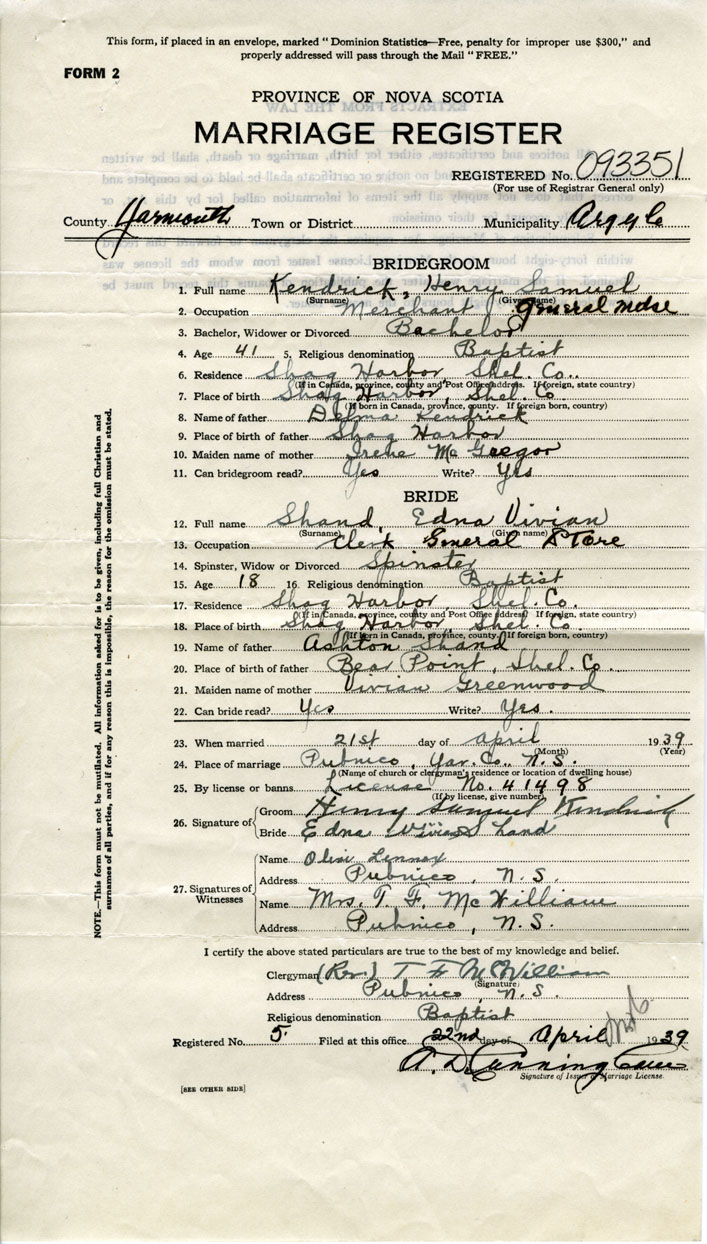 This form, if placed in an envelope, marked "Dominion Statistics—Free, penalty for improper use $300," and
properly addressed will pass through the Mail "FREE."
FORM 2
PROVINCE OF NOVA SCOTIA
MARRIAGE REGISTER
REGISTERED No. 093351
(For use of Registrar General only)
County Yarmouth Town or District Municipality Argyle
BRIDEGROOM
1. Full name Kendrick, Henry Samuel
(Surname) (Given name)
2. Occupation Merchant General mdse
3. Bachelor, Widower or Divorced Bachelor
4. Age 41 5. Religious denomination Baptist
6. Residence Shag Harbor, Shel. Co.
(If in Canada, province, county and Post Office address. If foreign, state country)
7. Place of birth Shag Harbor, Shel. Co
(If born in Canada, province, county. If foreign born, country)
8. Name of father Delma Kendrick
9. Place of father Shag Harbor
10. Maiden name of mother Irene McGregor
11. Can bridegroom read? Yes Write? Yes
BRIDE
12. Full name Shand, Edna Vivian
(Surname) (Given name)
13. Occupation Clerk General Store
14. Spinster, Widow or Divorced Spinster
15. Age 18 16. Religious denomination Baptist
17. Residence Shag Harbor, Shel. Co.
(If in Canada, province, county and Post Office address. If foreign, state country)
18. Place of birth Shag Harbor, Shel. Co.
(If born in Canada, province, county. If foreign born, country)
19. Name of father Ashton Shand
20. Place of birth of father Bear Point, Shel. Co.
21. Maiden name of mother Vivian Greenwood
22. Can bride read? Yes Write? Yes.
23. When married 21st day of April 1939
(Month) (Year)
24. Place of marriage Pubnico, Yar. Co., N.S.
(Name of church or clergyman's residence or location of dwelling house)
25. By license or banns License No. 41498
(If by license, give number)
26. Signature of Groom Henry Samuel Kendrick
Bride Edna Vivian Shand
27. Signatures of Witnesses Name Lennox
Address Pubnico, N.S.
Name Mrs. T. F. McWilliam
Address Pubnico, N.S.
I certify the above stated particulars are true to the best of my knowledge and belief.
Clergyman (Rev.) T F McWilliam
(Signature)
Address Pubnico, N.S.
Religious denomination Baptist
Registered No. 5. Filed at this office 22nd day of April 1939
Signature of Issuer of Marriage License.
[SEE OTHER SIDE]
NOTE.—This form must not be mutilated. All information asked for is to be given, including full Christian and
surnames of all parties, and if for any reason this is impossible, the reason for the omission must be stated.